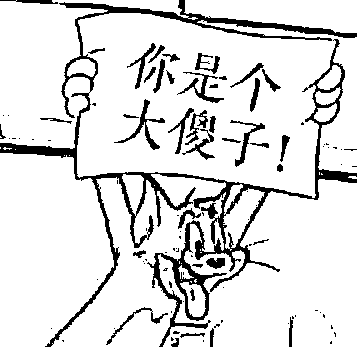 你是个
大傻子!